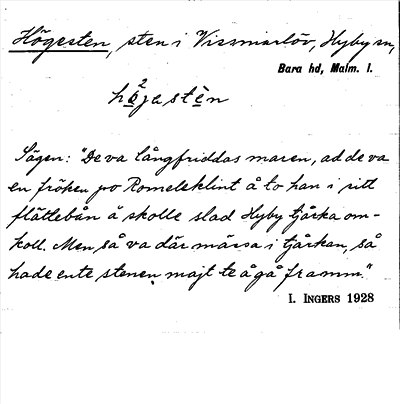 Högesten, sten i Vissmarlöv, Hyby sn,
Bara hd, Malm. l.
högastén
Sägen: "De va långfriddas maren, ad de va
en fröken po Romeleklint å to han i sitt
flättebån å skolle slad Hyby tjårka om-
koll. Men så va där mässa i tjårkan, så
hade ente stenen majt te å gå framm."
I. INGERS 1928